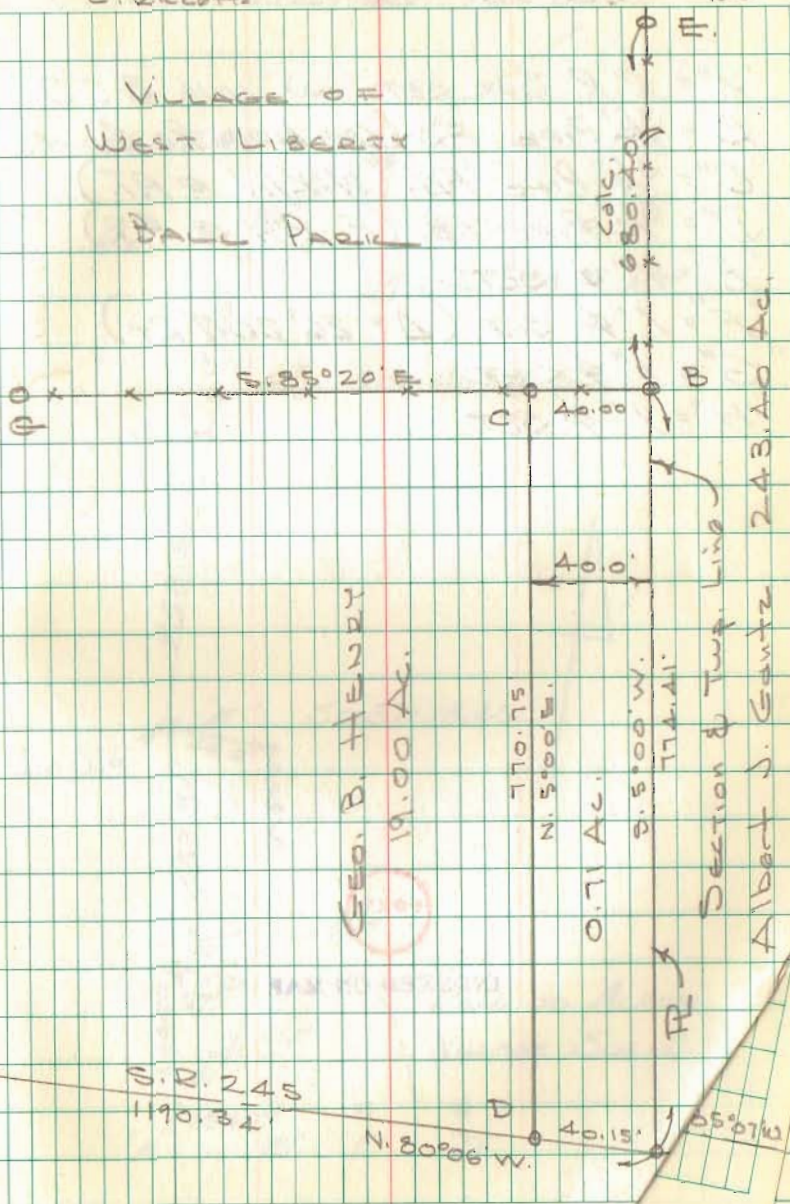 E.
VILLAGE OF
WEST LIBERTY
BALL PARK
Calc.
680.40
S. 85°20' E.
B
C
40.00
40.0'
GEO. B. HENRY
19.00 Ac.
770.75
N. 5°00' E.
0.71 Ac.
S. 5°00' W.
774.41'
SECTION & Twp. Line
Albert J. Gantz 243.40 Ac.
PL
S.R. 245
1190.34'
D
40.15'
N. 80°06' W.
85°07'10